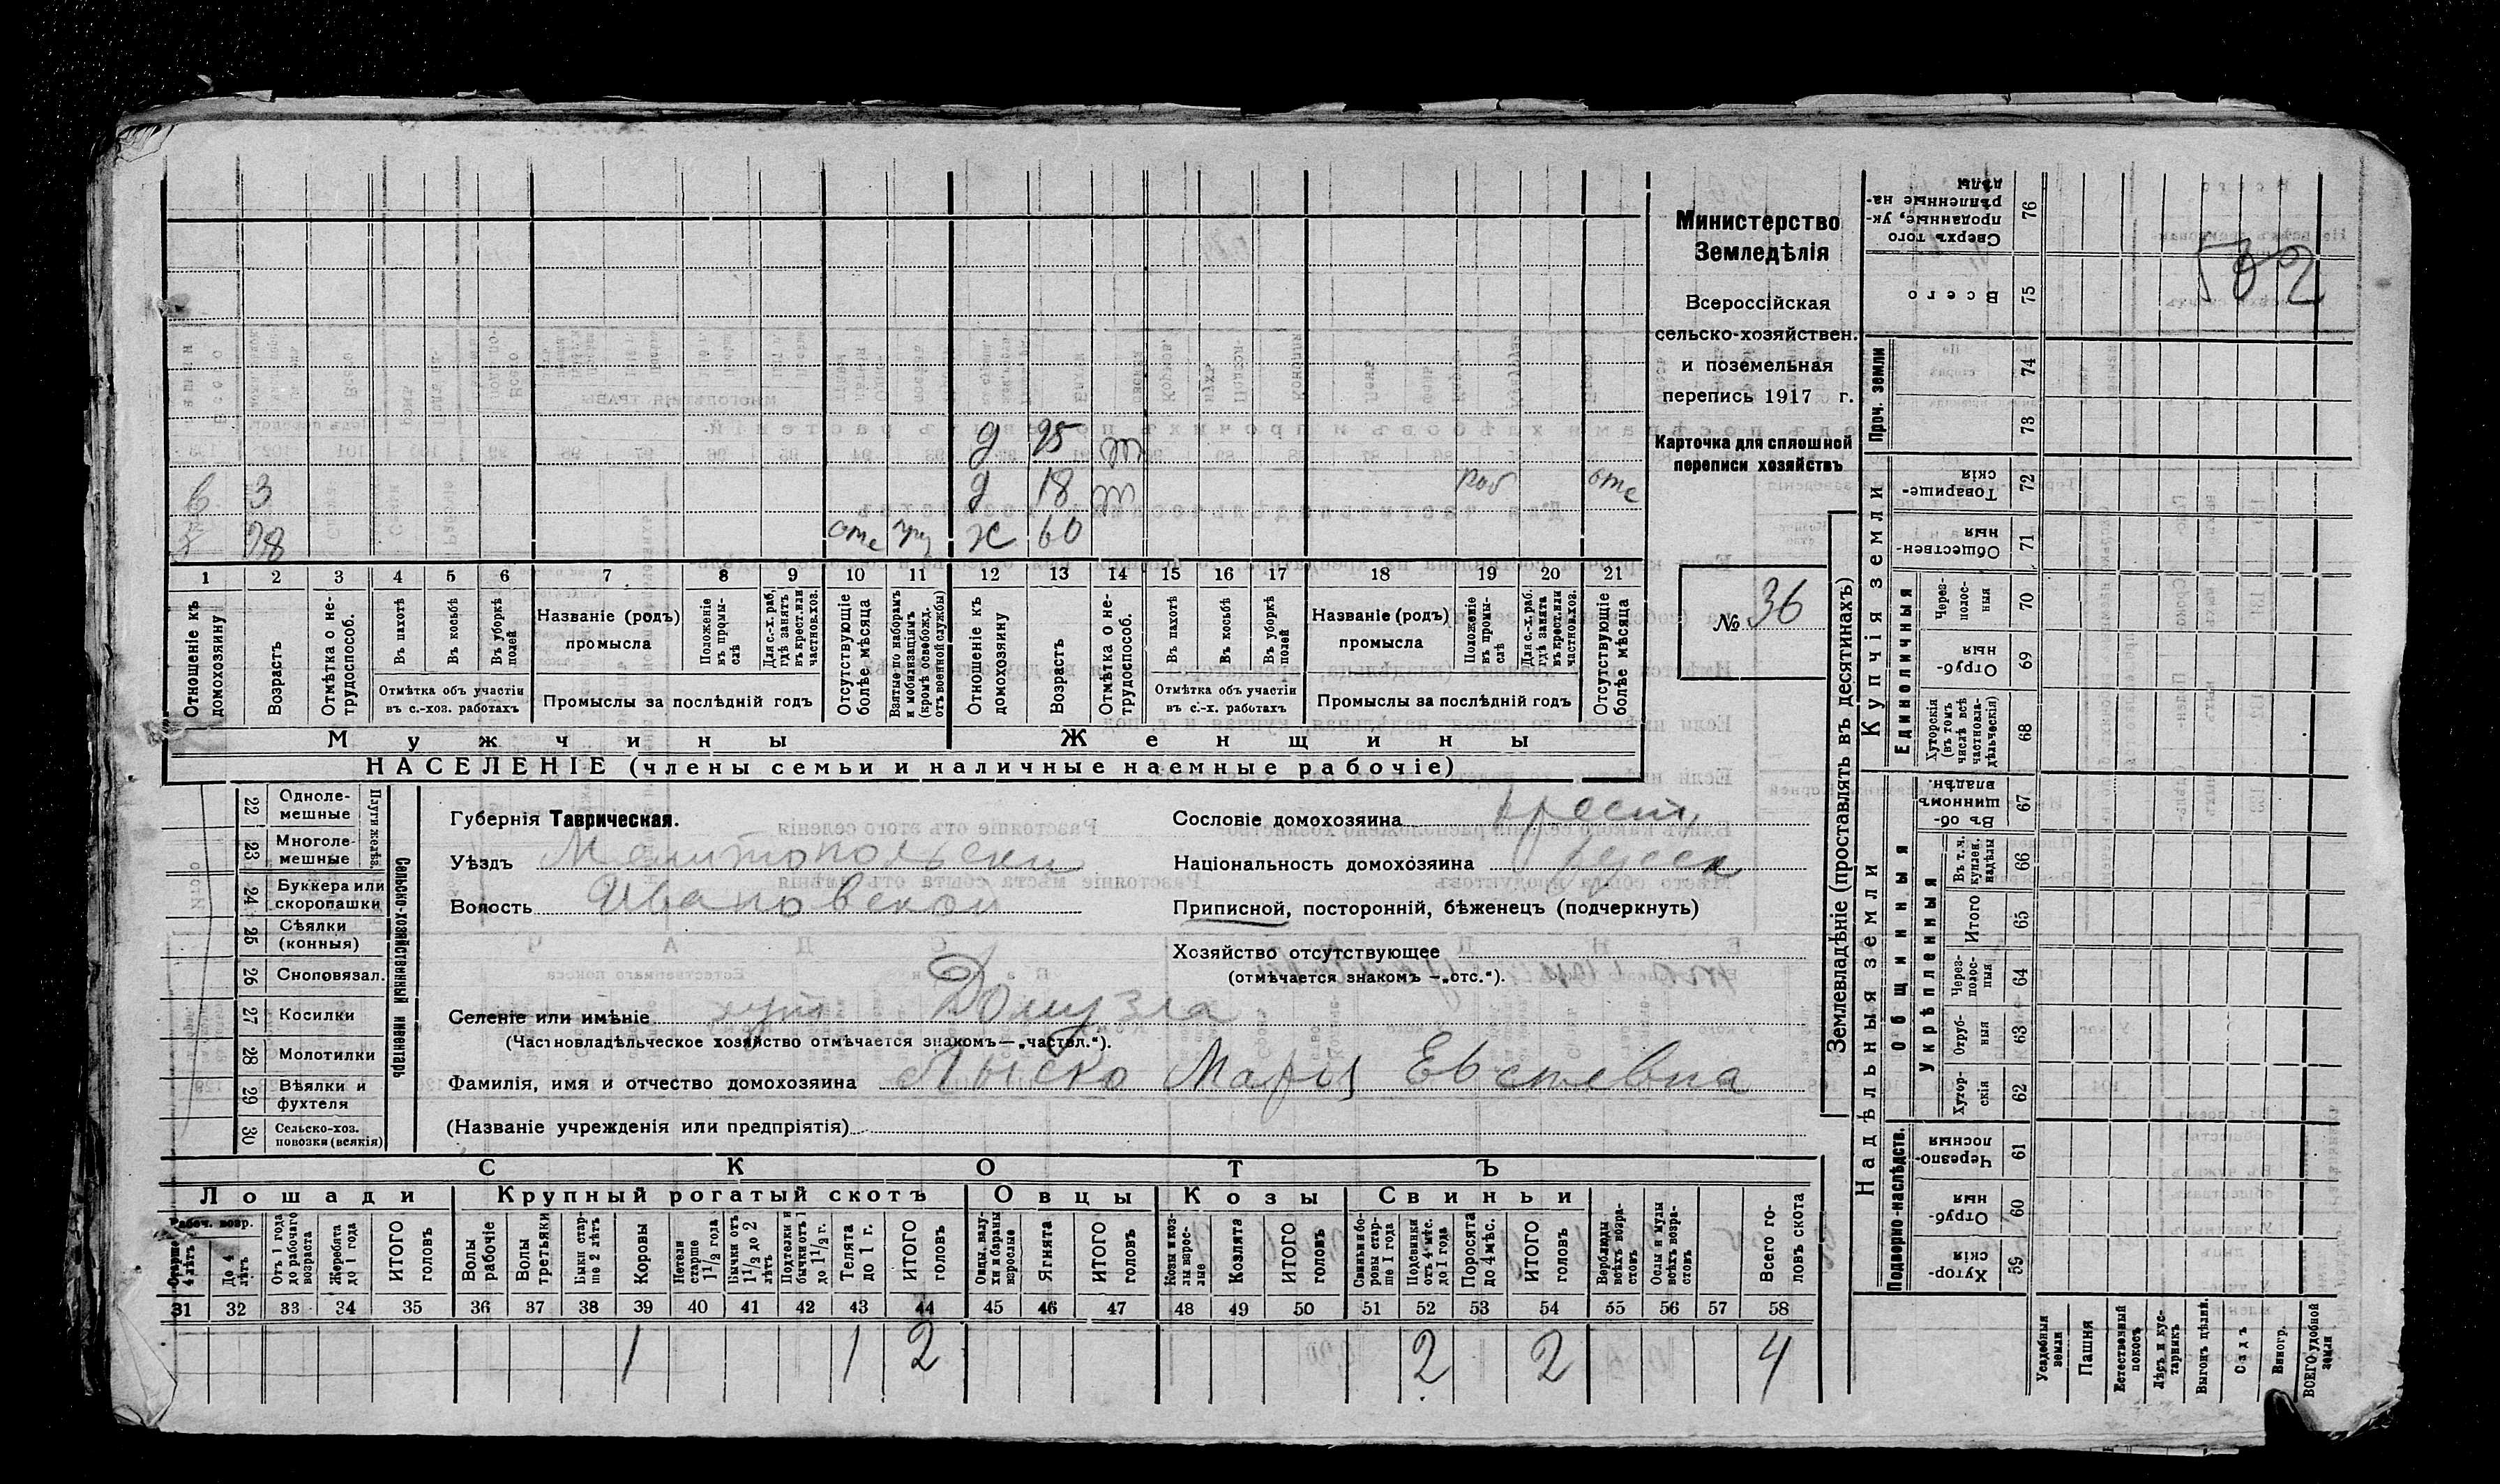 Министерство
Земледѣлія
Всероссійская
сельско-хозяйствен.
и поземельная
перепись 1917 г.
Карточка для сплошной
переписи хозяйствъ
№ 36
502
д 25 т
в 3 д 18 т раб отс
78 отс ж 60
1 2 3 4 5 6 7 8 9 10 11 12 13 14 15 16 17 18 19 20 21
Отношеніе къ домохозяину
Возрастъ
Отмѣтка о не-трудоспособ.
Въ пахотѣ
Въ косьбѣ
Въ уборкѣ полей
Отмѣтка объ участіи въ с.-хоз. работахъ
Названіе (родъ) промысла
Положеніе въ промы-слѣ
Для с.-х. раб, гдѣ занятъ въ крест. или частнов. хоз.
Промыслы за послѣдній годъ
Отсутствующіе болѣе мѣсяца
Взятые по наборамъ и мобилизаціямъ (кромѣ освобожд. отъ военной службы)
Отношеніе къ домохозяину
Возрастъ
Отмѣтка о не-трудоспособ.
Въ пахотѣ
Въ косьбѣ
Въ уборкѣ полей
Отмѣтка объ участіи въ с.-х. работахъ
Названіе (родъ) промысла
Положеніе въ промы-слѣ
Для с.-х. раб. гдѣ занята въ крест. или частнов. хоз.
Промыслы за послѣдній годъ
Отсутствующіе болѣе мѣсяца
Мужчины Женщины
НАСЕЛЕНІЕ (члены семьи и наличные наемные рабочіе)
Сельско-хозяйственный инвентарь
22 Одноле-мешные
23 Многоле-мешные
24 Буккера или скоропашки
25 Сѣялки (конныя)
26 Сноповязал.
27 Косилки
28 Молотилки
29 Вѣялки и фухтеля
30 Сельско-хоз. повозки (всякія)
Губернія Таврическая.
Уѣздъ Мелитопольски
Волость Ивановской
Селеніе или имѣніе хут Домузла
(Частновладѣльческое хозяйство отмѣчается знакомъ—„частвл.“).
Фамилія, имя и отчество домохозяина Лыско Марія Евстевна
(Названіе учрежденія или предпріятія)
Сословіе домохозяина крест.
Національность домохозяина русск
Приписной, посторонній, бѣженецъ (подчеркнуть)
Хозяйство отсутствующее
(отмѣчается знакомъ —„отс.“).
СКОТЪ
Лошади Крупный рогатый скотъ Овцы Козы Свиньи
Рабоч. возр.
Старше 4 лѣтъ
До 4 лѣтъ
Отъ 1 года до рабочаго возраста
Жеребята до 1 года
ИТОГО головъ
Волы рабочіе
Волы третьяки
Быки стар-ше 2 лѣтъ
Коровы
Нетели старше 1 1/2 года
Бычки отъ 1 1/2 до 2 лѣтъ
Подтелки и бычки отъ 1 до 1 1/2 г.
Телята до 1 г.
ИТОГО головъ
Овцы, валу-хи и бараны взрослые
Ягнята
ИТОГО головъ
Козы и коз-лы взрос-лые
Козлята
ИТОГО головъ
Свиньи и бо-ровы стар-ше 1 года
Подсвинки отъ 4 мѣс. до 1 года
Поросята до 4 мѣс.
ИТОГО головъ
Верблюды всѣхъ возра-стовъ
Ослы и мулы всѣхъ возра-стовъ
Всего го-ловъ скота
31 32 33 34 35 36 37 38 39 40 41 42 43 44 45 46 47 48 49 50 51 52 53 54 55 56 57 58
1 1 2 2 2 4
Землевладѣніе (проставлять въ десятинахъ)
Надѣльныя земли
Купчія земли
Проч. земли
Подворно-наслѣдств.
Общинныя
Укрѣпленныя
Единоличныя
Сверхъ того проданные, ук-рѣпленные на-дѣлы 76
Всего 75
74
73
Товарище-скія 72
Обществен-ныя 71
Через-полос-ныя 70
Отруб-ныя 69
Хуторскія (въ томъ числѣ всѣ частновла-дѣльческія) 68
Въ об-щинномъ владѣн. 67
Въ т. ч. куплен. надѣлы 66
Итого 65
Через-полос-ныя 64
Отруб-ныя 63
Хутор-скія 62
Черезпо-лосныя 61
Отруб-ныя 60
Хутор-скія 59
Усадебныя земли
Пашня
Естественный покосъ
Лѣсъ и кус-тарникъ
Выгонъ цѣлин.
Садъ
Виногр.
ВСЕГО удобной земли